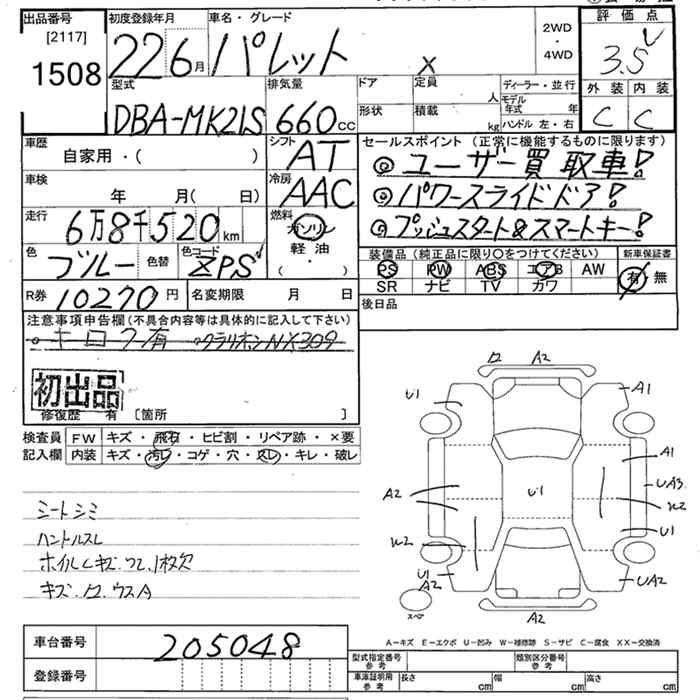 出品番号
[2117]
1508
初度登録年月
22 6月
車名・グレード
パレット X
2WD
・
4WD
評価点
3.5
外装 内装
C C
型式
DBA-MK21S
排気量
660cc
ドア
定員 人
形状
積載 kg
ディーラー・並行
モデル年式 年
ハンドル 左・右
車歴
自家用・( )
シフト
AT
車検
年 月( 日)
冷房
AAC
走行
6万8千520km
燃料
ガソリン
軽油
( ・ )
色
ブルー
色替
色コード
ZPS
R券 10270円
名変期限 月 日
セールスポイント (正常に機能するものに限ります)
◎ユーザー買取車!
◎パワースライドドア!
◎プッシュスタート&スマートキー!
装備品(純正品に限り○をつけてください)
PS PW ABS エアB AW
SR ナビ TV カワ
新車保証書
有・無
後日品
注意事項申告欄(不具合内容等は具体的に記入して下さい)
。キロク有 。クラリオンNX309
初出品
修復歴 有 [箇所 ]
検査員記入欄
FW キズ・飛石・ヒビ割・リペア跡・×要
内装 キズ・汚レ・コゲ・穴・スレ・キレ・破レ
シートシミ
ハンドルスレ
ホイルCキズ.
キズ.
A2
U1
A1
A1
A2
UA3
U1
U1
A2
UA2
A2
スペア
A-キズ E-エクボ U-凹み W-補修跡 S-サビ C-腐食 XX-交換済
車台番号 205048
登録番号
型式指定番号
参考
類別区分番号
参考
車庫証明用
参考
長さ cm 幅 cm 高さ cm